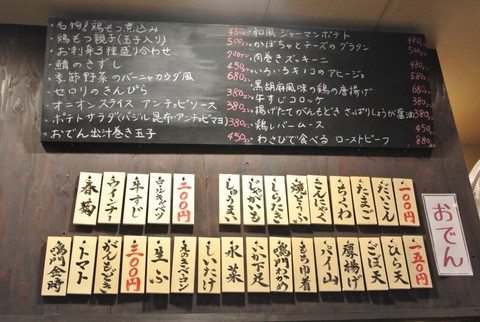 ・名物!鶏もつ煮込み 450
・鶏もつ親子(玉子入り) 500
・お刺身3種盛り合わせ
・鯖のきずし 450
・季節野菜のバーニャカウダ風 680
・セロリのきんぴら 380
・オニオンスライス アンチョビソース 380
・ポテトサラダ(バジル・昆布・アンチョビマヨ) 380
・おでん出汁巻き玉子 450
・和風 ジャーマンポテト
・かぼちゃとチーズのグラタン
・肉巻きズッキーニ 480
・いろいろキノコのアヒージョ
・黒胡麻風味の鶏の唐揚げ
・牛すじコロッケ 380
・揚げたてがんもどき さっぱりしょうが醤油
・鶏レバームース 450
・わさびで食べる ローストビーフ 880
おでん
一〇〇円
だいこん
たまご
ちくわ
こんにゃく
焼とうふ
しらたき
じゃがいも
しゅうまい
二〇〇円
ロールキャベツ
牛すじ
ウインナー
春菊
一五〇円
ひら天
ごぼ天
厚揚げ
もち巾着
鳴門わかめ
いか下足
水菜
しいたけ
えのきベーコン
生ふ
三〇〇円
がんもどき
トマト
鳴門金時